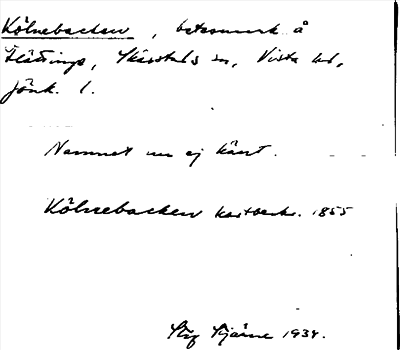 Kölnebacken, betesmark å
Flättinge, Skärstads sn, Vista hd,
Jönk. l.
Namnet nu ej känt.
Kölnebacken kartbeskr. 1855
Stig Hjärne 1934.